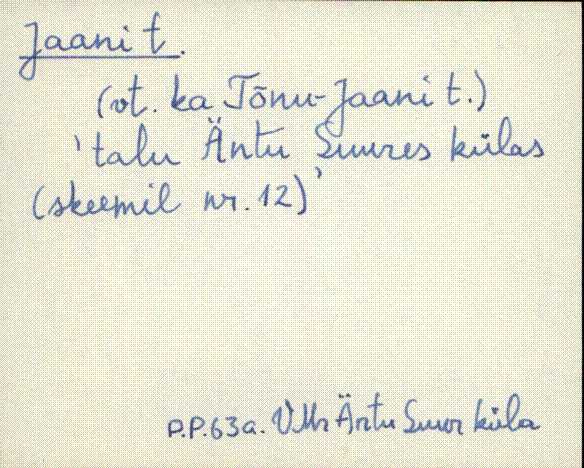 Jaani t.
(vt. ka Tõnu-Jaani t.)
'talu Äntu Suures külas
(skeemil nr. 12)'
P.P.63a. VMr Äntu Suur küla